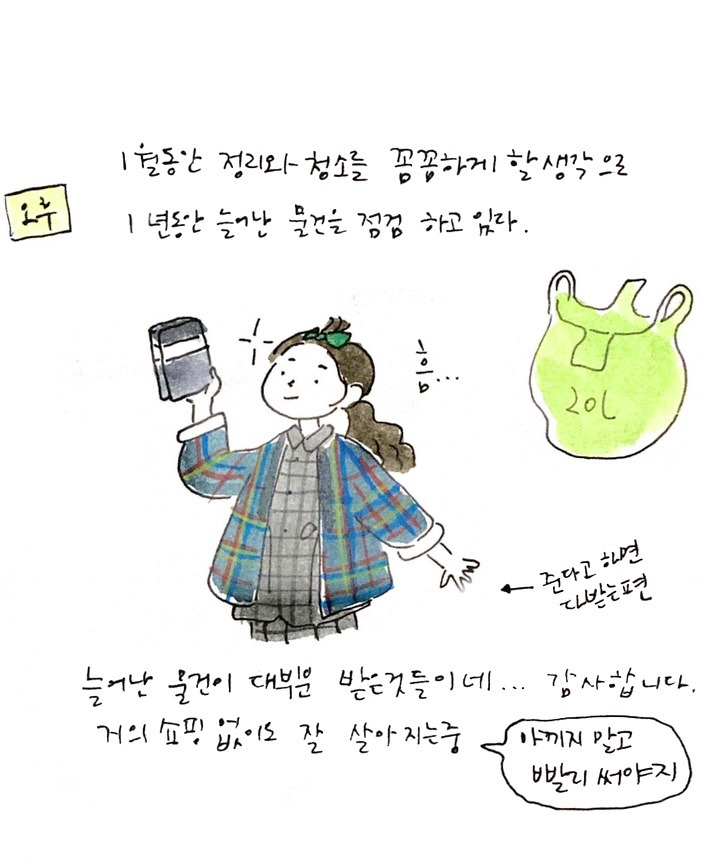 1월동안 정리와 청소를 꼼꼼하게 할 생각으로
오후
1년동안 늘어난 물건을 점검 하고 있다.
흠...
20L
준다고 하면
다받는편
늘어난 물건이 대부분 받은것들이네... 감사합니다.
거의 쇼핑 없이도 잘 살아 지는중
아끼지 말고
빨리 써야지